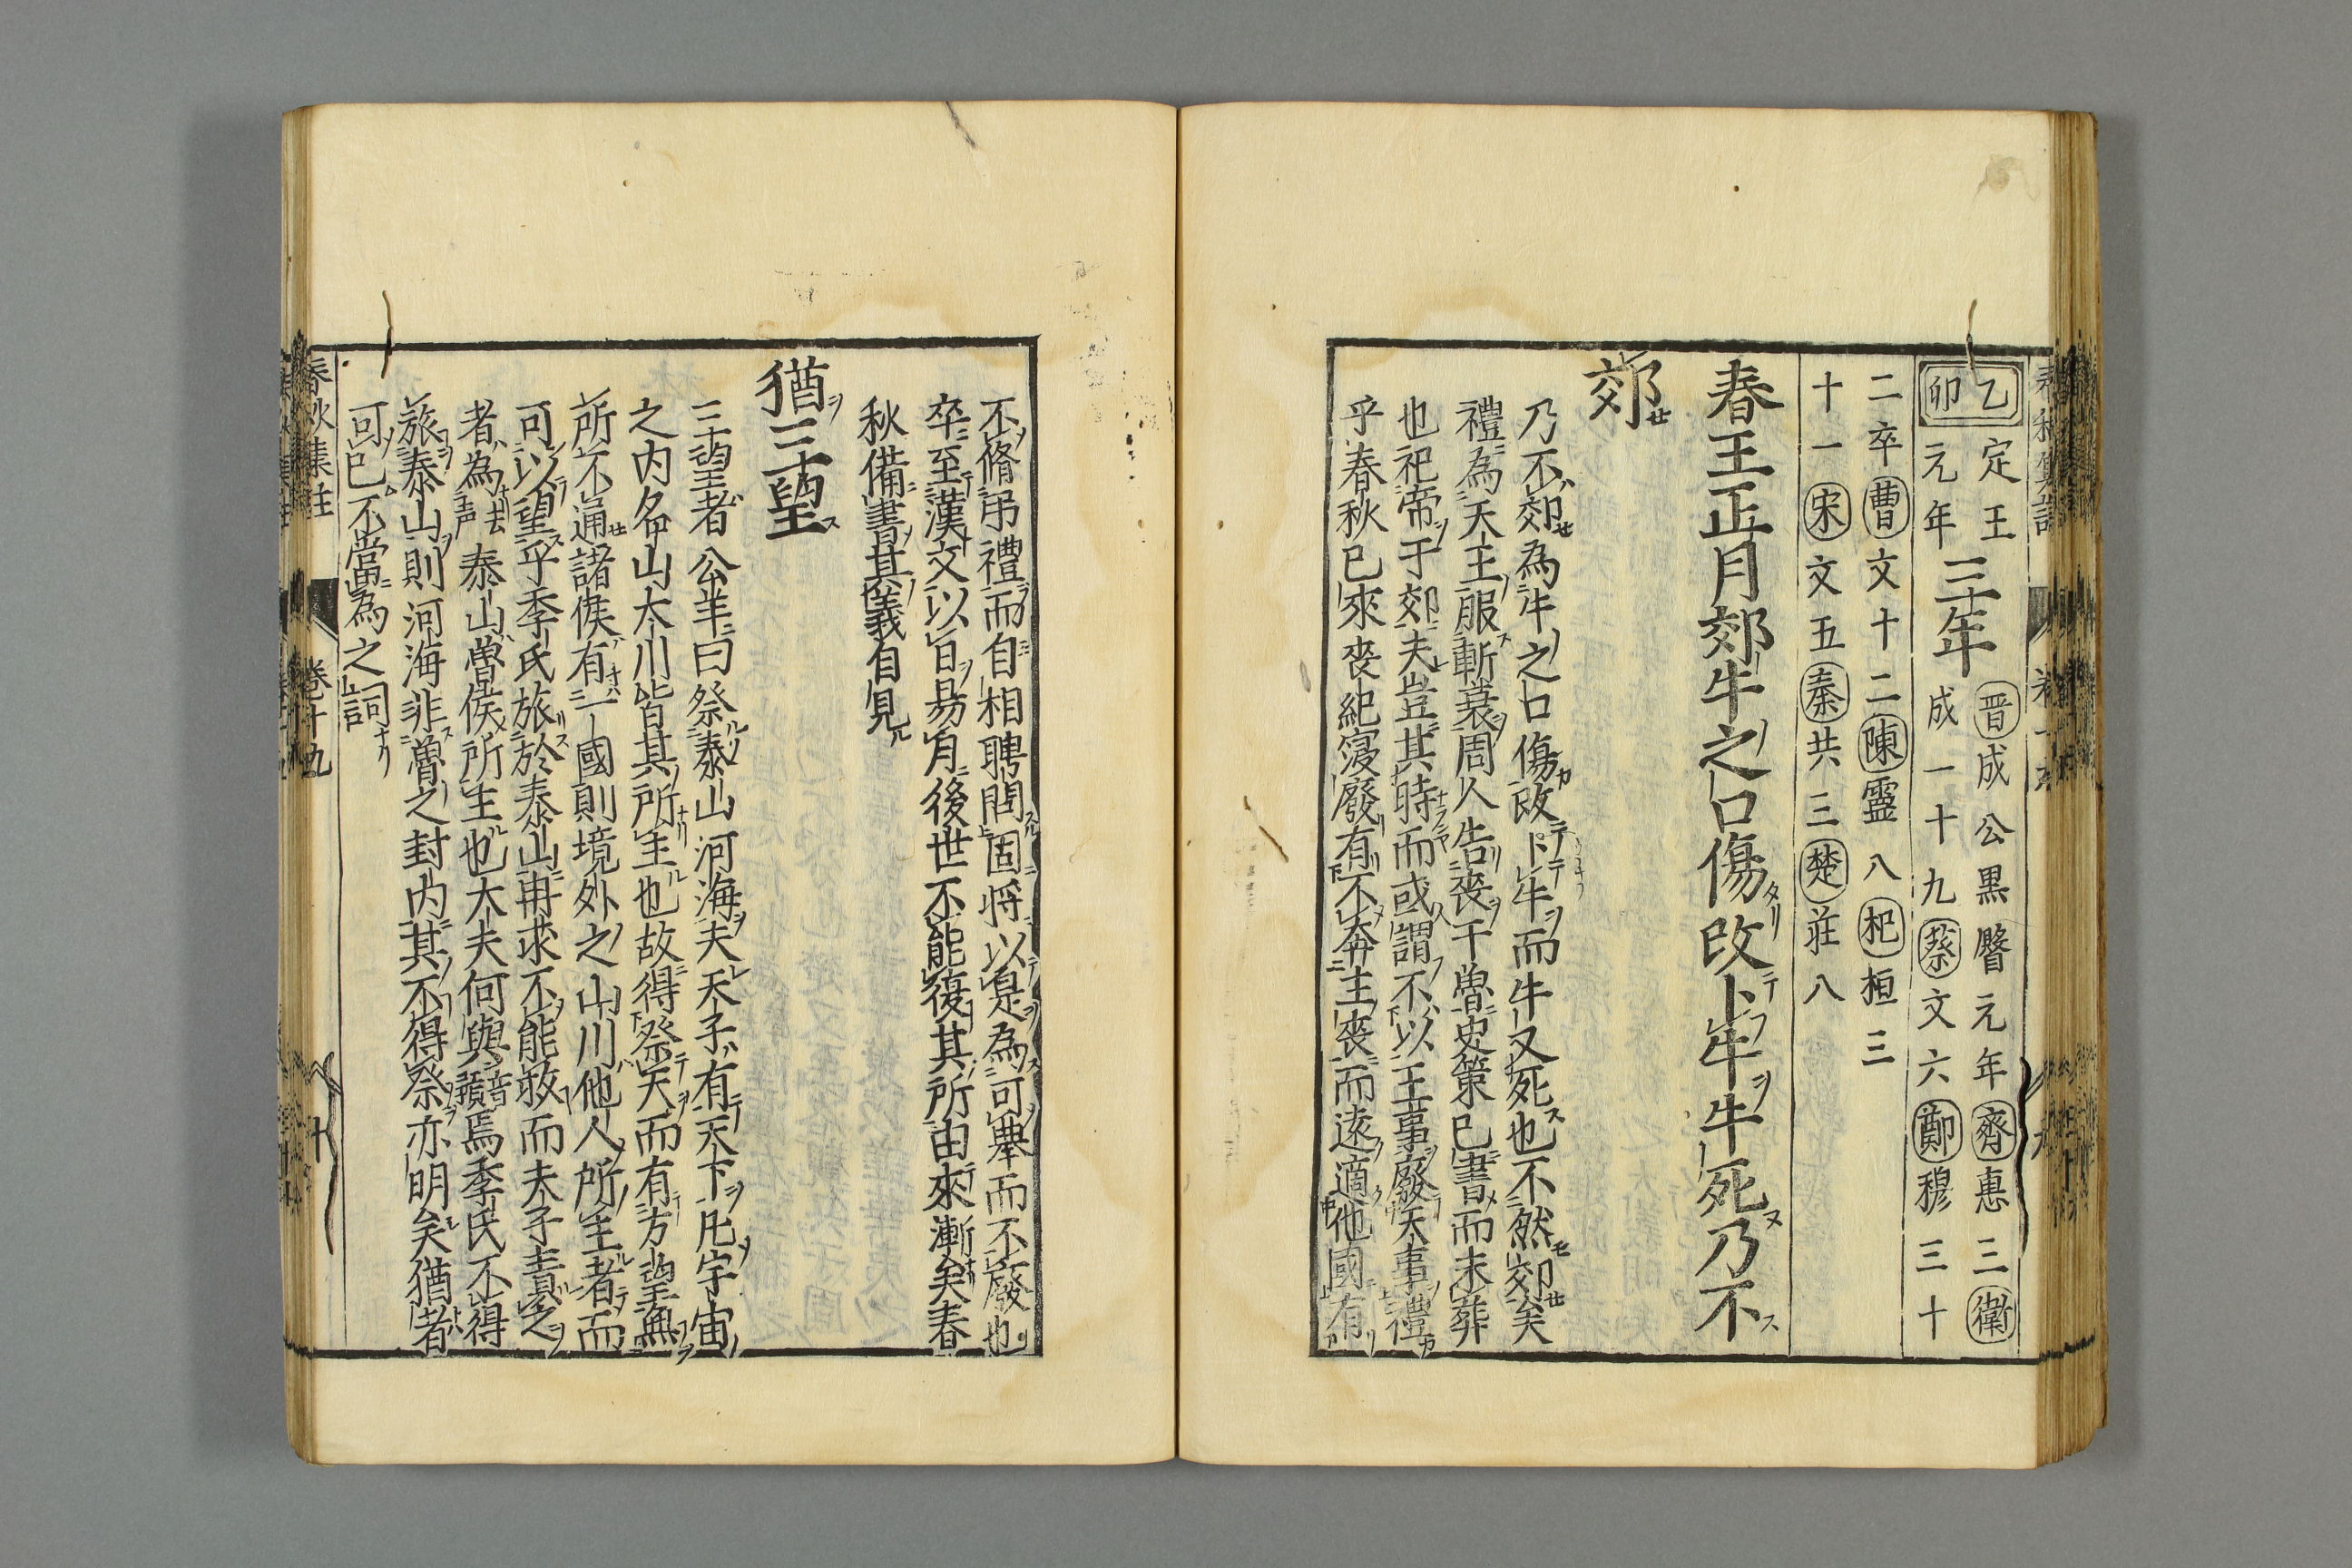 乙卯
定王元年
三年
晋成公黒臀元年齊惠三衛
成一十九蔡文六鄭穆三十
二卒曹文十二陳靈八杞桓三
十一宋文五秦共三楚莊八
春王正月郊牛之口傷改卜牛牛死乃不
郊
乃不郊為牛之口傷改卜牛而牛又死也不然郊矣
禮為天王服斬衰周人告喪于魯史策已書而未葬
也祀帝于郊夫豈其時而或謂不以王事廢天事禮
乎春秋已來喪紀寖廢有不奔王喪而遠適他國有
不脩弔禮而自相聘問固將以是為可舉而不廢也
卒至漢文以日易月後世不能復其所由來漸矣春
秋備書其義自見
猶三望
三望者公羊曰祭泰山河海夫天子有天下凡宇宙
之内名山大川皆其所主也故得祭天而有方望無
所不通諸侯有一國則境外之山川他人所主者而
可以望乎季氏旅於泰山冉求不能救而夫子責之
者為去聲泰山魯侯所主也大夫何與音預焉季氏不得
旅泰山則河海非魯之封内其不得祭亦明矣猶者
可已不當為之詞
春秋集註
卷十九
十